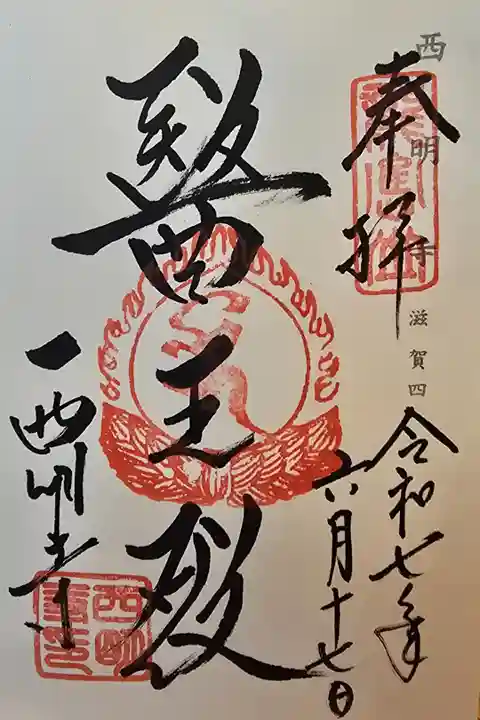 西明寺 滋賀四
奉拝
令和七年
六月十七日
醫王殿
西明寺